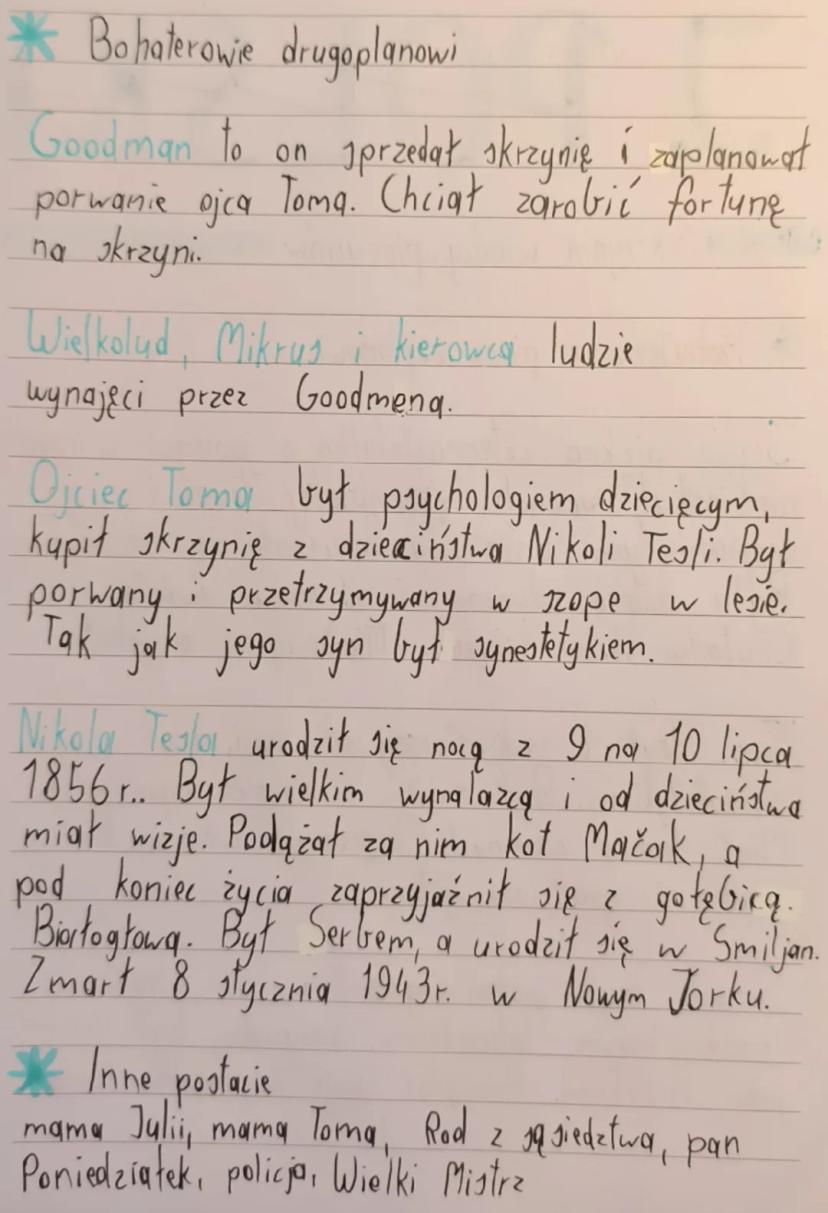 Bohaterowie drugoplanowi
Goodman to on sprzedał skrzynię i zaplanował
porwanie ojca Toma. Chciał zarobić fortunę
na skrzyni.
Wielkolud, Mikrus i kierowca ludzie
wynajęci przez Goodmena.
Ojciec Toma był psychologiem dziecięcym,
kupił skrzynię z dzieciństwa Nikoli Tesli. Był
porwany i przetrzymywany w szope w lesie.
Tak jak jego syn był synestetykiem.
Nikola Tesla urodził się nocą z 9 na 10 lipca
1856r.. Był wielkim wynalazcą i od dzieciństwa
miał wizje. Podążał za nim kot Mačak, a
pod koniec życia zaprzyjaźnił się z gołębicą.
Białogłową. Był Serbem, a urodził się w Smiljan.
Zmarł 8 stycznia 1943r. w Nowym Jorku.
Inne postacie
mama Julii, mama Toma, Rod z sąsiedztwa, pan
Poniedziałek, policja, Wielki Mistrz